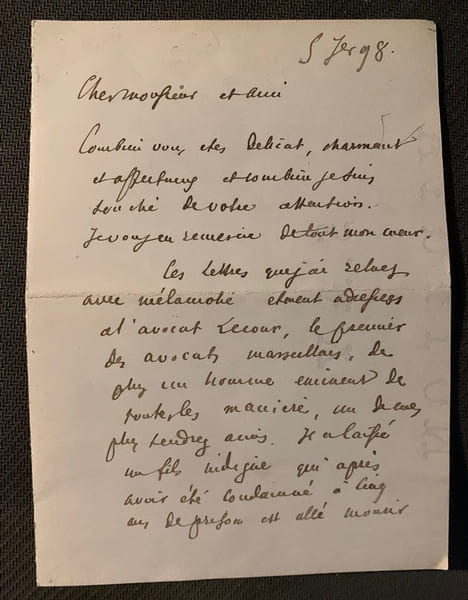 5 Jer 98.
Cher monsieur et ami
Combien vous etes delicat, charmant
et affectueux et combien je suis
touché de votre attention.
Je vous en remercie de tout mon cœur.
Les lettres que j'ai relues
avec mélancolie etaient adressées
a l'avocat Lecour, le premier
des avocats marseillais, de
plus un homme eminent de
toutes les manieres, un de mes
plus tendres amis. Il a laissé
un fils indigne qui après
avoir été condamné à cinq
ans de prison est allé mourir